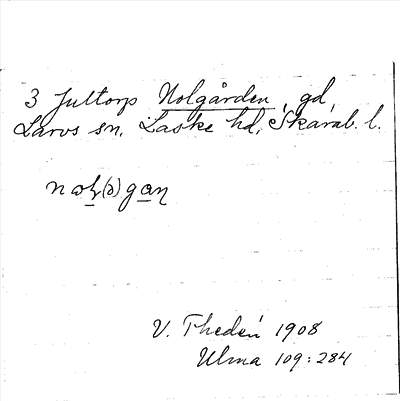 3 Jultorp Nolgården, gd,
Larvs sn, Laske hd, Skarab. l.
V. Thedén 1908
Ulma 109:284